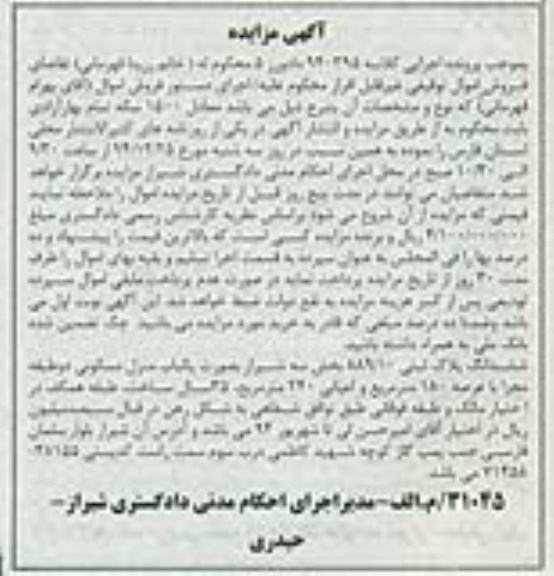 آگهی مزایده
بموجب پرونده اجرایی کلاسه ۹۴۰۳۹۵ مادون ۵ محکوم له ( خانم زیبا قهرمانی) تقاضای
فروش اموال توقیفی غیرقابل فرار محکوم علیه/اجرای دستور فروش اموال (آقای بهرام
قهرمانی) که نوع و مشخصات آن بشرح ذیل می باشد معادل ۱۵۰۰ سکه تمام بهارآزادی
بابت محکوم به از طریق مزایده و انتشار آگهی در یکی از روزنامه های کثیرالانتشار محلی
استان فارس را نموده به همین سبب در روز سه شنبه مورخ ۹۴/۱۲/۲۵ از ساعت ۹/۳۰
الی ۱۰/۳۰ صبح در محل اجرای احکام مدنی دادگستری شیراز مزایده برگزار خواهد
شد متقاضیان می توانند در مدت پنج روز قبل از تاریخ مزایده اموال را ملاحظه نمایند
قیمتی که مزایده از آن شروع می شود براساس نظریه کارشناس رسمی دادگستری مبلغ
ریال و برنده مزایده کسی است که بالاترین قیمت را پیشنهاد و ده
درصد بها را فی المجلس به عنوان سپرده به قسمت اجرا تسلیم و بقیه بهای اموال را ظرف
مدت ۳۰ روز از تاریخ مزایده پرداخت نماید در صورت عدم پرداخت مابقی اموال سپرده
تودیعی پس از کسر هزینه مزایده به نفع دولت ضبط خواهد شد این آگهی نوبت اول می
باشد وضمنا ده درصد مبلغی که قادر به خرید مورد مزایده می باشید چک تضمین شده
بانک ملی به همراه داشته باشید.
ششدانگ پلاک ثبتی ۸۸۹/۱۰ بخش سه شیراز بصورت یکباب منزل مسکونی دوطبقه
مجزا با عرصه ۱۵۰ مترمربع و اعیانی ۲۴۰ مترمربع، ساخت، طبقه همکف در
اختیار مالک و طبقه فوقانی طبق توافق شفاهی به شکل رهن در قبال میلیون
ریال در اختیار آقای امیرحسن تا شهریور ۹۴ می باشد و آدرس آن شیراز بلوار سلمان
فارسی جنب پمپ گاز کوچه شهید کاظمی درب سوم سمت راست کدپستی
می باشد.
۳۱۰۴۵/م الف-مدیراجرای احکام مدنی دادگستری شیراز-
حیدری